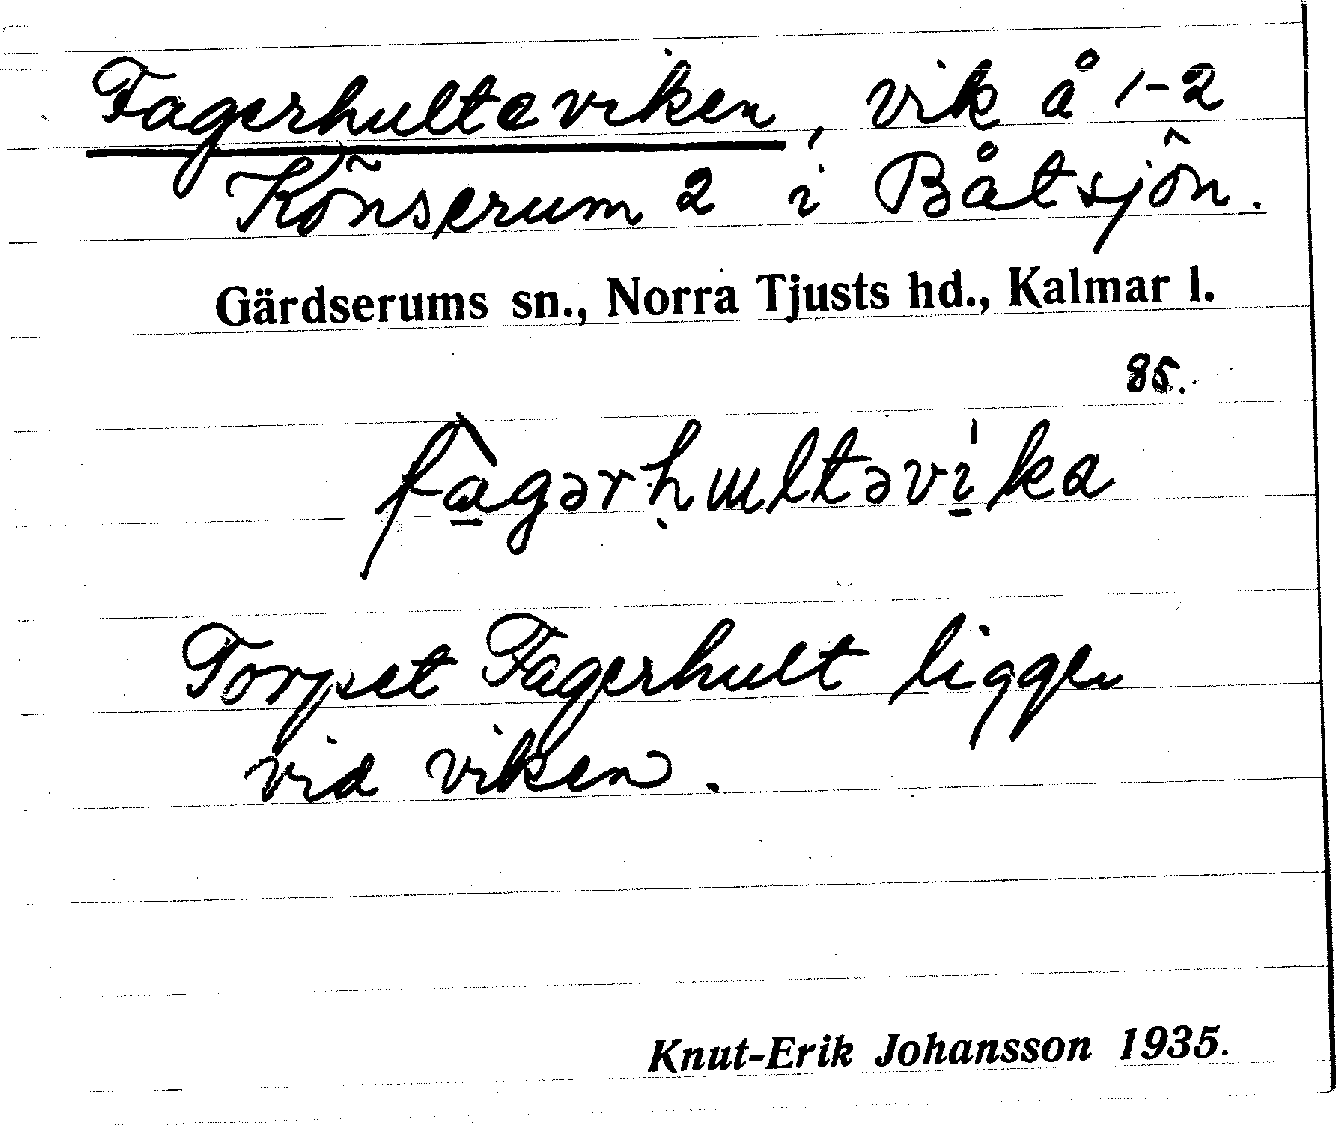 Fagerhulteviken, vik å 1-2
Könserum 2 i Båtsjön.
Gärdserums sn., Norra Tjusts hd., Kalmar l.
85.
fàgərḥultəvi̍ka
Torpet Fagerhult ligger
vid viken.
Knut-Erik Johansson 1935.